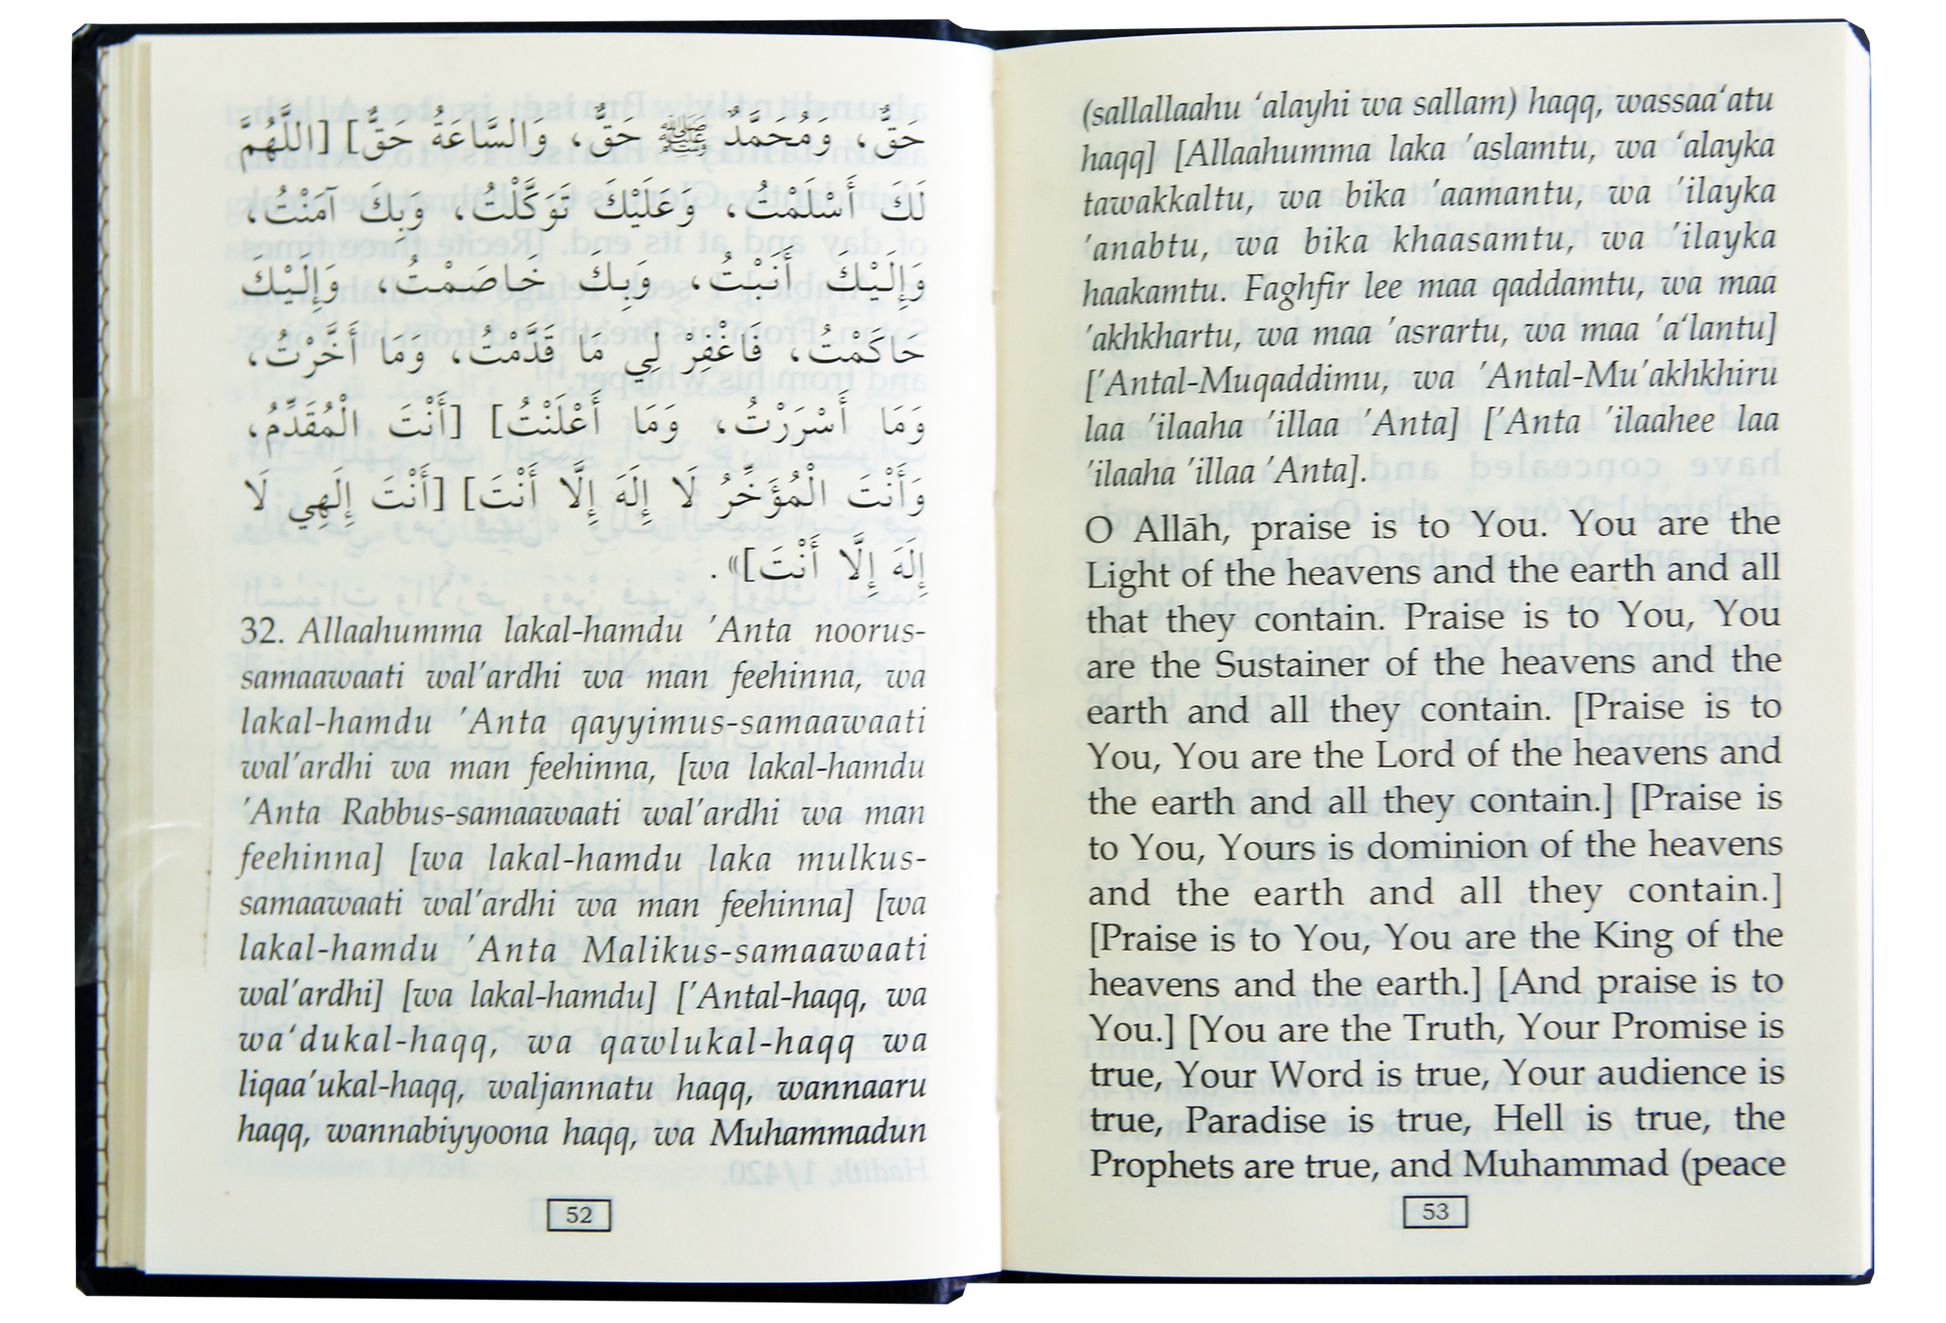 حَقٌّ، وَمُحَمَّدٌ ﷺ حَقٌّ، وَالسَّاعَةُ حَقٌّ] [اللَّهُمَّ
لَكَ أَسْلَمْتُ، وَعَلَيْكَ تَوَكَّلْتُ، وَبِكَ آمَنْتُ،
وَإِلَيْكَ أَنَبْتُ، وَبِكَ خَاصَمْتُ، وَإِلَيْكَ
حاكَمْتُ، فَاغْفِرْ لِي مَا قَدَّمْتُ، وَمَا أَخَّرْتُ،
وَمَا أَسْرَرْتُ، وَمَا أَعْلَنْتُ] [أَنْتَ الْمُقَدِّمُ،
وَأَنْتَ الْمُؤَخِّرُ لَا إِلَهَ إِلَّا أَنْتَ] [أَنْتَ إِلَهِي لَا
إِلَهَ إِلَّا أَنْتَ]».
32. Allaahumma lakal-hamdu 'Anta noorus-
samaawaati wal'ardhi wa man feehinna, wa
lakal-hamdu 'Anta qayyimus-samaawaati
wal'ardhi wa man feehinna, [wa lakal-hamdu
'Anta Rabbus-samaawaati wal'ardhi wa man
feehinna] [wa lakal-hamdu laka mulkus-
samaawaati wal'ardhi wa man feehinna] [wa
lakal-hamdu 'Anta Malikus-samaawaati
wal'ardhi] [wa lakal-hamdu] ['Antal-haqq, wa
wa‘dukal-haqq, wa qawlukal-haqq wa
liqaa'ukal-haqq, waljannatu haqq, wannaaru
haqq, wannabiyyoona haqq, wa Muhammadun
52
(sallallaahu ‘alayhi wa sallam) haqq, wassaa‘atu
haqq] [Allaahumma laka 'aslamtu, wa ‘alayka
tawakkaltu, wa bika 'aamantu, wa 'ilayka
'anabtu, wa bika khaasamtu, wa 'ilayka
haakamtu. Faghfir lee maa qaddamtu, wa maa
'akhkhartu, wa maa 'asrartu, wa maa 'a‘lantu]
['Antal-Muqaddimu, wa 'Antal-Mu'akhkhiru
laa 'ilaaha 'illaa 'Anta] ['Anta 'ilaahee laa
'ilaaha 'illaa 'Anta].
O Allāh, praise is to You. You are the
Light of the heavens and the earth and all
that they contain. Praise is to You, You
are the Sustainer of the heavens and the
earth and all they contain. [Praise is to
You, You are the Lord of the heavens and
the earth and all they contain.] [Praise is
to You, Yours is dominion of the heavens
and the earth and all they contain.]
[Praise is to You, You are the King of the
heavens and the earth.] [And praise is to
You.] [You are the Truth, Your Promise is
true, Your Word is true, Your audience is
true, Paradise is true, Hell is true, the
Prophets are true, and Muhammad (peace
53